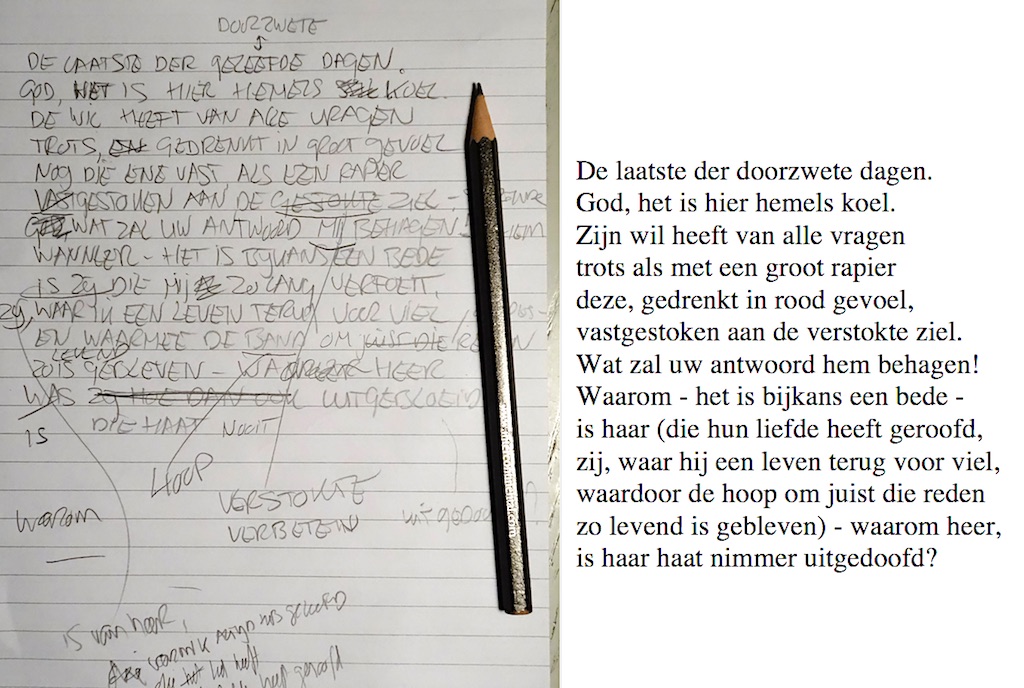 DOORZWETE
DE LAATSTE DER GEZEEFDE DAGEN.
GOD, HET IS HIER HEMELS KOEL.
DE WIL HEEFT VAN ALLE VRAGEN
TROTS, EN GEDRENKT IN GROOT GEVOEL
NOG DIE ENE VAST ALS EEN RAPIER
VASTGESTOKEN AAN DE ZIEL -
WAT ZAL UW ANTWOORD MIJ BEHAGEN! HEM
WANNEER - HET IS BIJKANS EEN BEDE
IS ZIJ DIE MIJ ZO LANG
ZIJ, WAAR IK EEN LEVEN TERUG VOOR VIEL
EN WAARMEE DE BAND OM JUIST DIE REDEN
LEVEND
ZOIS GEBLEVEN - HEER
WAS ZIJ HOE DAN OOK UITGEBLOEID
IS DIE HAAT NOOIT
HOOP
VERSTOKTE
VERBETEND
waarom
is van haar,
waarin ik
die het lief heeft
heeft geroofd
De laatste der doorzwete dagen.
God, het is hier hemels koel.
Zijn wil heeft van alle vragen
trots als met een groot rapier
deze, gedrenkt in rood gevoel,
vastgestoken aan de verstokte ziel.
Wat zal uw antwoord hem behagen!
Waarom - het is bijkans een bede -
is haar (die hun liefde heeft geroofd,
zij, waar hij een leven terug voor viel,
waardoor de hoop om juist die reden
zo levend is gebleven) - waarom heer,
is haar haat nimmer uitgedoofd?